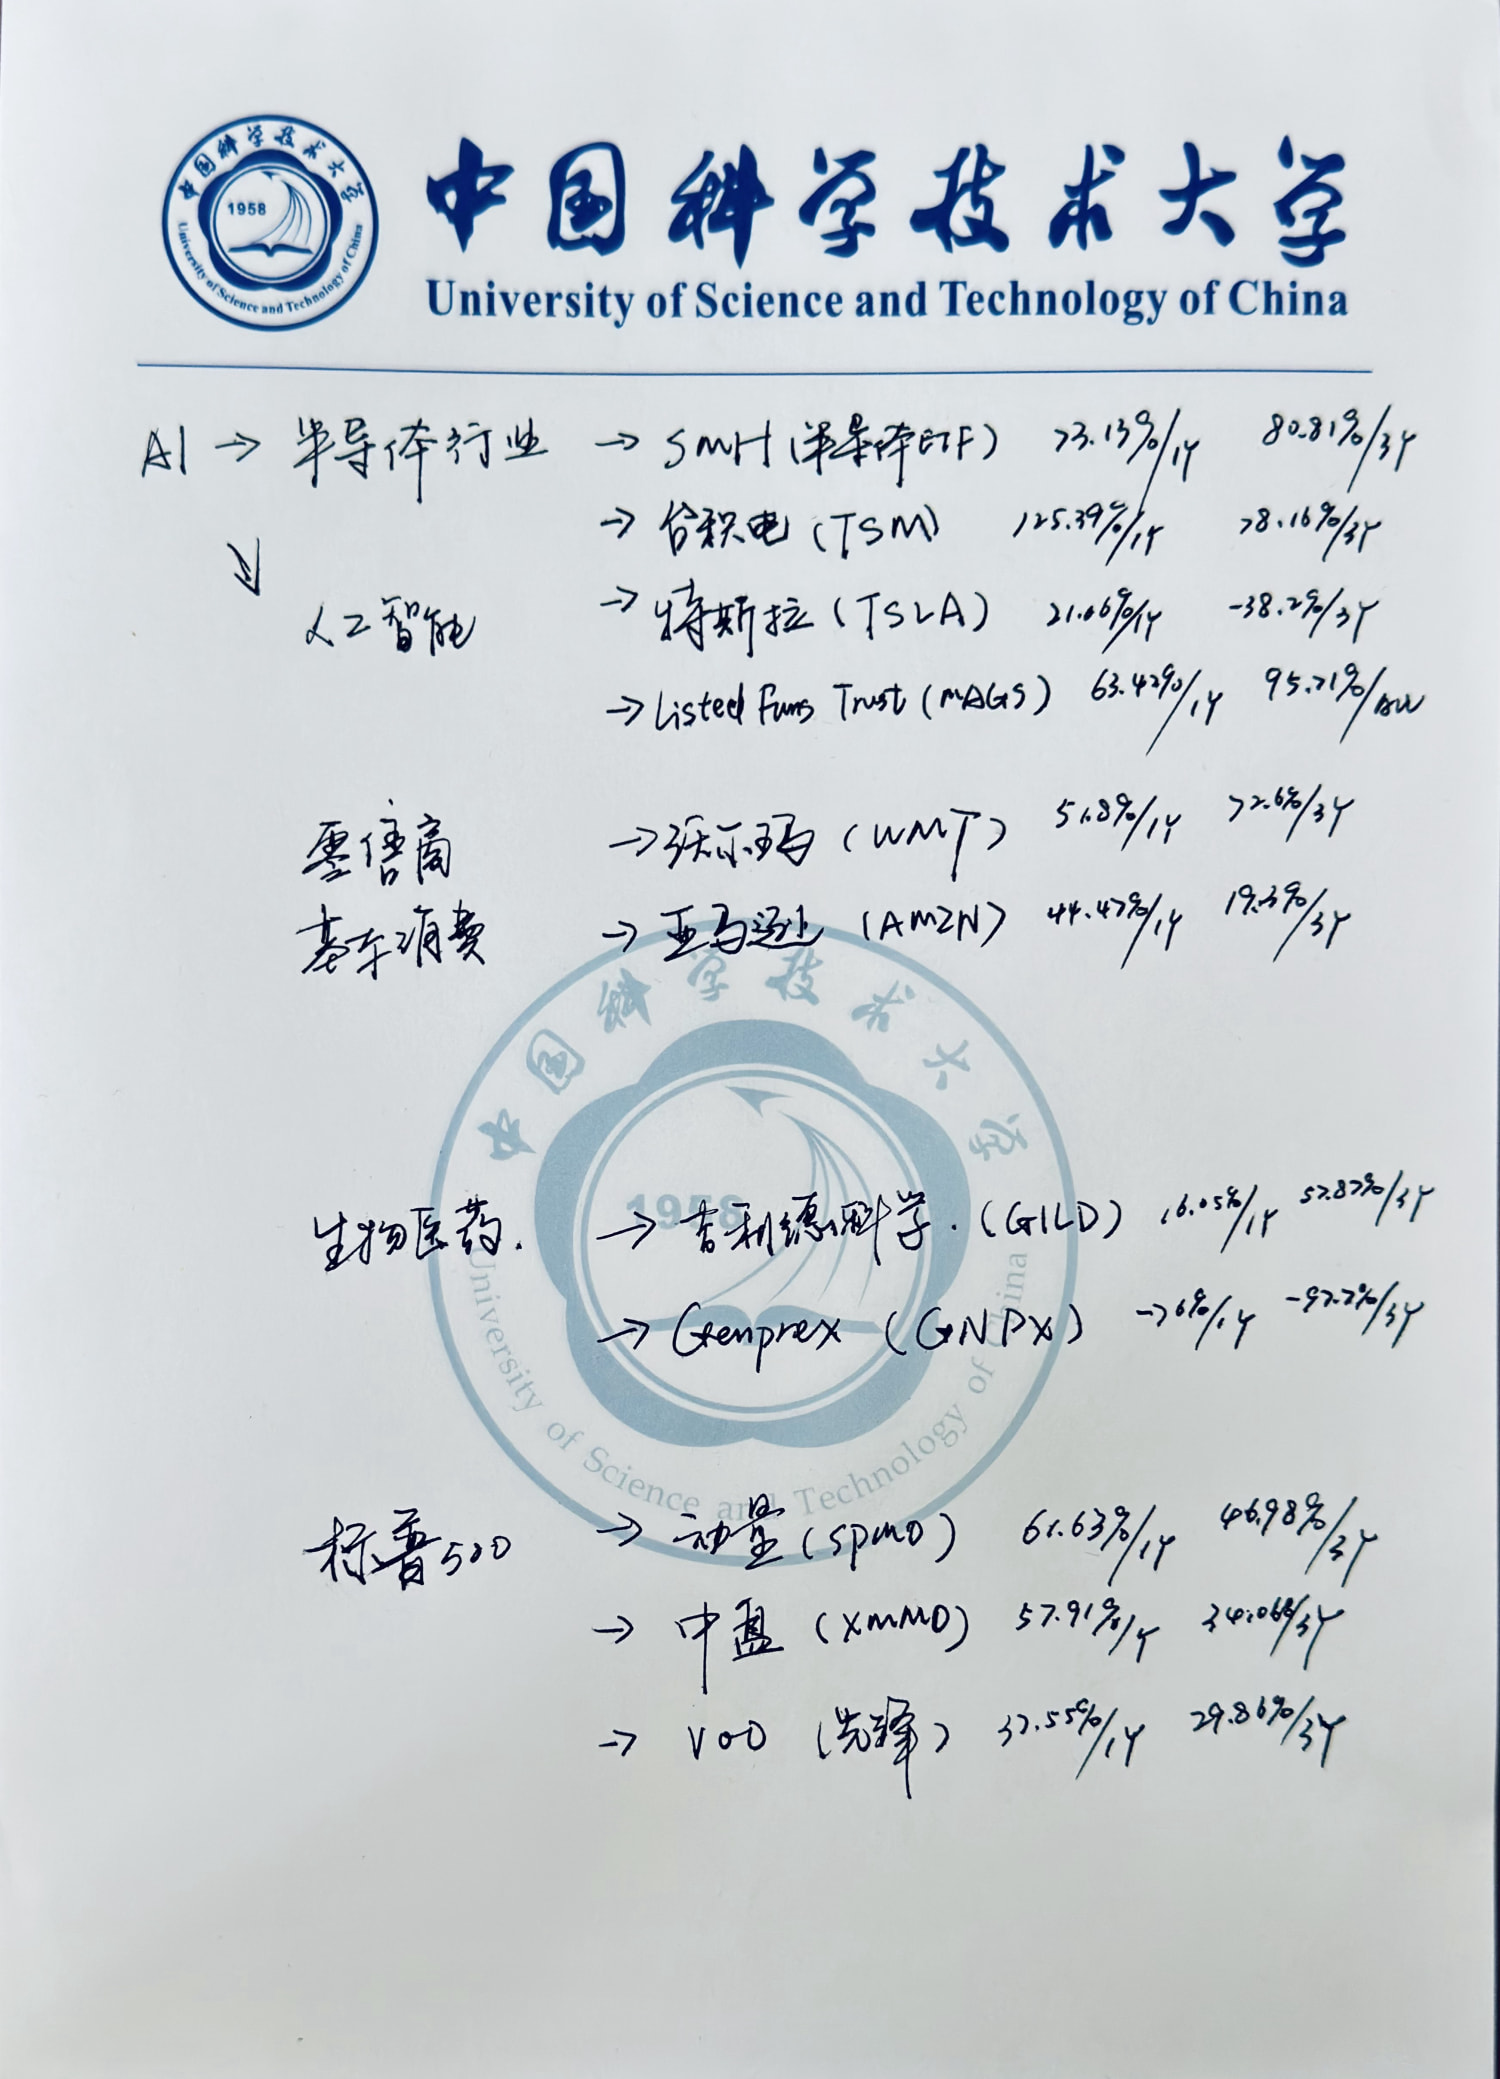 中国科学技术大学
1958
University of Science and Technology of China
中国科学技术大学
University of Science and Technology of China
AI → 半导体行业 → SMH (半导体ETF) 73.13%/1Y 80.81%/3Y
→ 台积电 (TSM) 125.39%/1Y 78.16%/3Y
人工智能 → 特斯拉 (TSLA) 21.06%/1Y -38.2%/3Y
→ Listed Funs Trust (MAGS) 63.42%/1Y 95.71%/
零售商 → 沃尔玛 (WMT) 51.8%/1Y 72.6%/3Y
基本消费 → 亚马逊 (AMZN) 44.47%/1Y 19.3%/3Y
中国科学技术大学
1958
University of Science and Technology of China
生物医药. → 吉利德科学. (GILD) 16.05%/1Y 57.87%/3Y
→ Genprex (GNPX) -76%/1Y -97.7%/3Y
标普500 → 动量 (SPMO) 61.63%/1Y 46.98%/3Y
→ 中盘 (XMMO) 57.91%/1Y 34.06%/3Y
→ VOO (先锋) 37.55%/1Y 29.86%/3Y